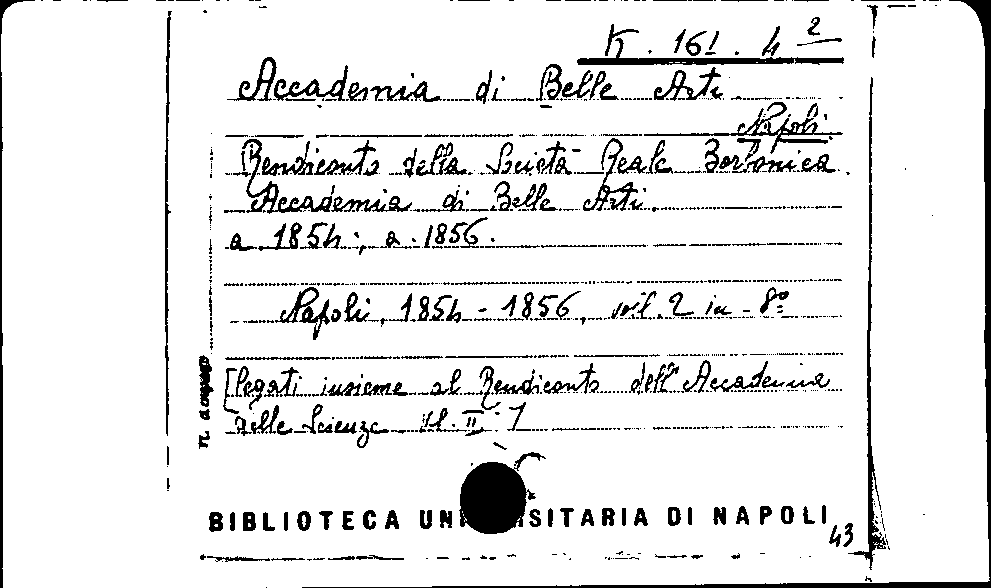 K. 161. 4 2
Accademia di Belle Arti.
Napoli.
Rendiconto della Società Reale Borbonica.
Accademia di Belle Arti.
a. 1854; a. 1856.
Napoli, 1854 - 1856, vol. 2 in - 8º
[legati insieme al Rendiconto dell'Accademia
delle Scienze vol. II]
N. d'ingresso
BIBLIOTECA UNI SITARIA DI NAPOLI
43